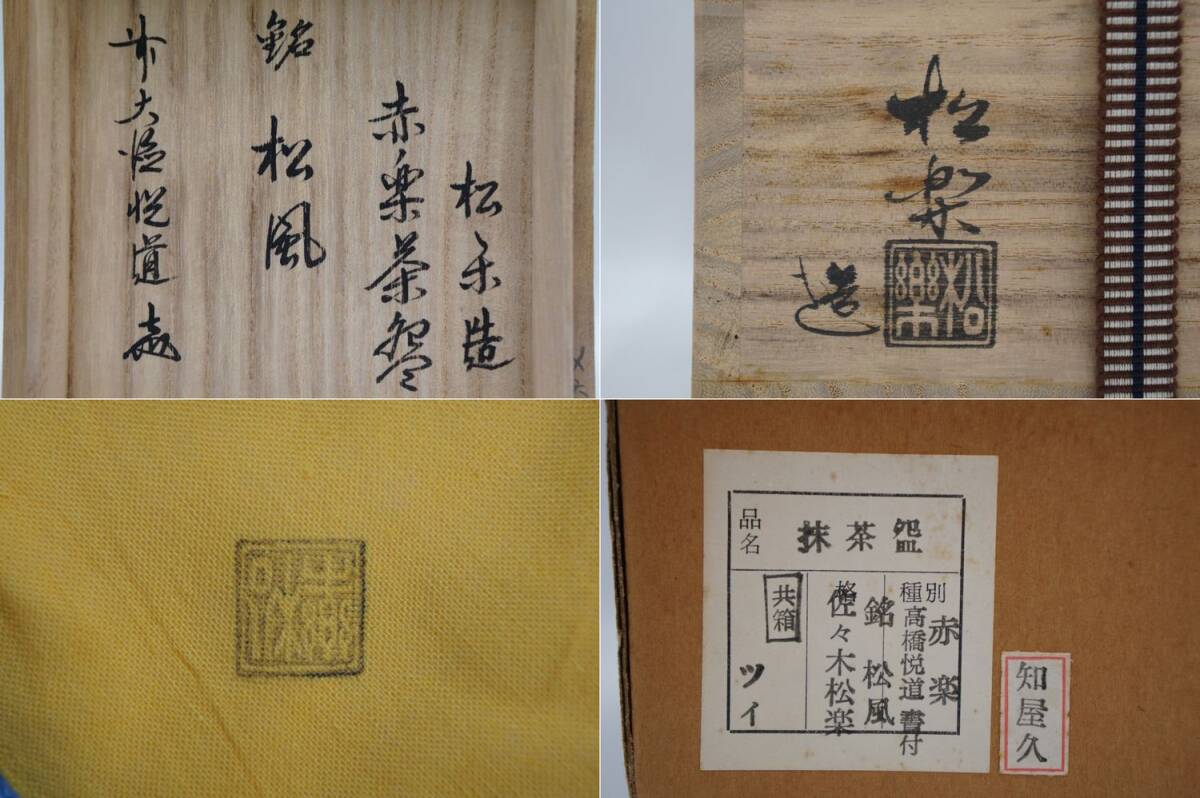 松楽造
赤楽茶碗
銘 松風
前大徳悦道 (花押)
松楽
造
松楽
品名
抹茶盌
種別
赤楽
高橋悦道 書付
銘 松風
佐々木松楽
共箱
ツイ
知屋久